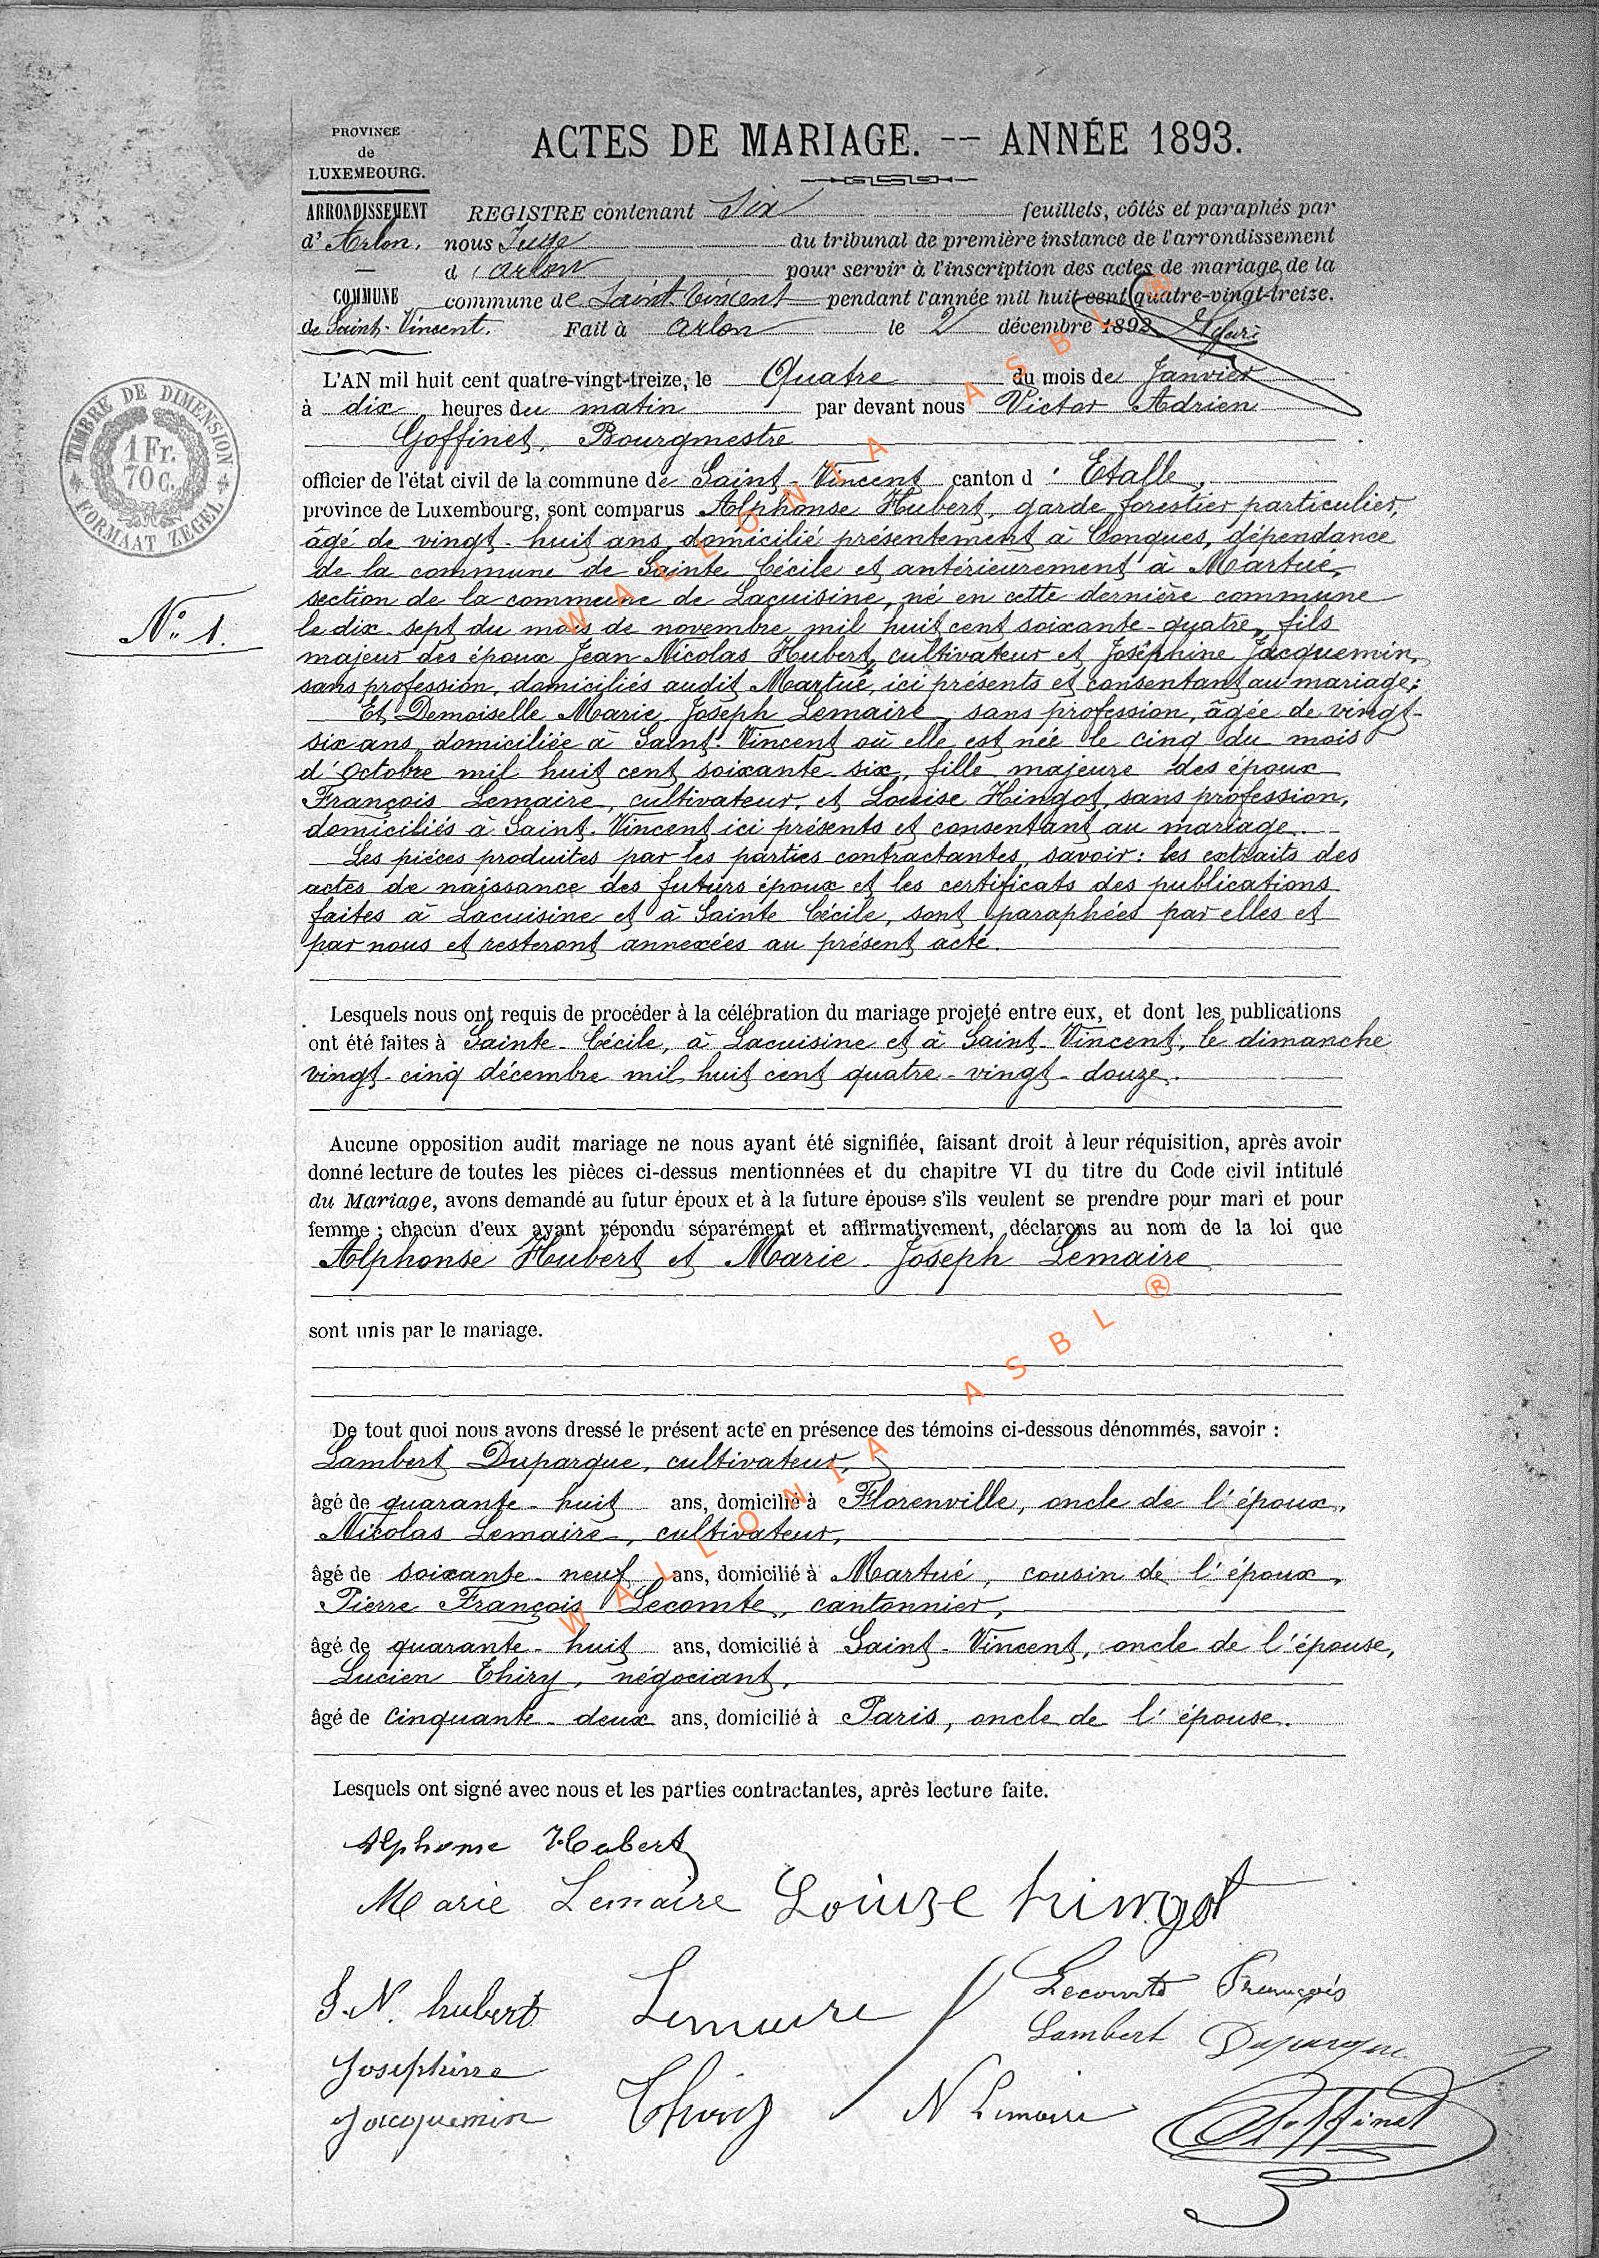 PROVINCE
de
LUXEMBOURG.
ACTES DE MARIAGE. -- ANNÉE 1893.
ARRONDISSEMENT
d'Arlon.
COMMUNE
de Saint-Vincent.
REGISTRE contenant Six feuillets, côtés et paraphés par
nous Juge du tribunal de première instance de l'arrondissement
d'Arlon pour servir à l'inscription des actes de mariage de la
commune de Saint-Vincent pendant l'année mil huit cent quatre-vingt-treize.
Fait à Arlon le 2 décembre 1892
TIMBRE DE DIMENSION
1 Fr.
70 C.
FORMAAT ZEGEL
N° 1.
L'AN mil huit cent quatre-vingt-treize, le Quatre du mois de Janvier
à dix heures du matin par devant nous Victor Adrien
Goffinet, Bourgmestre
officier de l'état civil de la commune de Saint-Vincent canton d'Etalle,
province de Luxembourg, sont comparus Alphonse Hubert, garde forestier particulier,
âgé de vingt-huit ans, domicilié présentement à Conques, dépendance
de la commune de Sainte Cécile et antérieurement à Martué,
section de la commune de Lacuisine, né en cette dernière commune
le dix-sept du mois de novembre mil huit cent soixante-quatre, fils
majeur des époux Jean Nicolas Hubert, cultivateur et Joséphine Jacquemin,
sans profession, domiciliés audit Martué, ici présents et consentant au mariage;
Et Demoiselle Marie-Joseph Lemaire, sans profession, âgée de vingt-
six ans, domiciliée à Saint-Vincent où elle est née le cinq du mois
d'Octobre mil huit cent soixante-six, fille majeure des époux
François Lemaire, cultivateur, et Louise Hingot, sans profession,
domiciliés à Saint-Vincent ici présents et consentant au mariage.
Les pièces produites par les parties contractantes, savoir: les extraits des
actes de naissance des futurs époux et les certificats des publications
faites à Lacuisine et à Sainte Cécile, sont paraphées par elles et
par nous et resteront annexées au présent acte.
Lesquels nous ont requis de procéder à la célébration du mariage projeté entre eux, et dont les publications
ont été faites à Sainte-Cécile, à Lacuisine et à Saint-Vincent, le dimanche
vingt-cinq décembre mil huit cent quatre-vingt-douze.
Aucune opposition audit mariage ne nous ayant été signifiée, faisant droit à leur réquisition, après avoir
donné lecture de toutes les pièces ci-dessus mentionnées et du chapitre VI du titre du Code civil intitulé
du Mariage, avons demandé au futur époux et à la future épouse s'ils veulent se prendre pour mari et pour
femme ; chacun d'eux ayant répondu séparément et affirmativement, déclarons au nom de la loi que
Alphonse Hubert et Marie-Joseph Lemaire
sont unis par le mariage.
De tout quoi nous avons dressé le présent acte en présence des témoins ci-dessous dénommés, savoir :
Lambert Duparque, cultivateur,
âgé de quarante-huit ans, domicilié à Florenville, oncle de l'époux,
Nicolas Lemaire, cultivateur,
âgé de soixante-neuf ans, domicilié à Martué, cousin de l'époux,
Pierre François Lecomte, cantonnier,
âgé de quarante-huit ans, domicilié à Saint-Vincent, oncle de l'épouse,
Lucien Thiry, négociant,
âgé de cinquante-deux ans, domicilié à Paris, oncle de l'épouse.
Lesquels ont signé avec nous et les parties contractantes, après lecture faite.
Alphonse Hubert
Marie Lemaire Louise hingot
J. N. hubert Lemaire Lecomte François
Lambert Duparque
Josephine
Jacquemin Thiry N Lemaire Goffinet
WALLONIA ASBL ®
WALLONIA ASBL ®